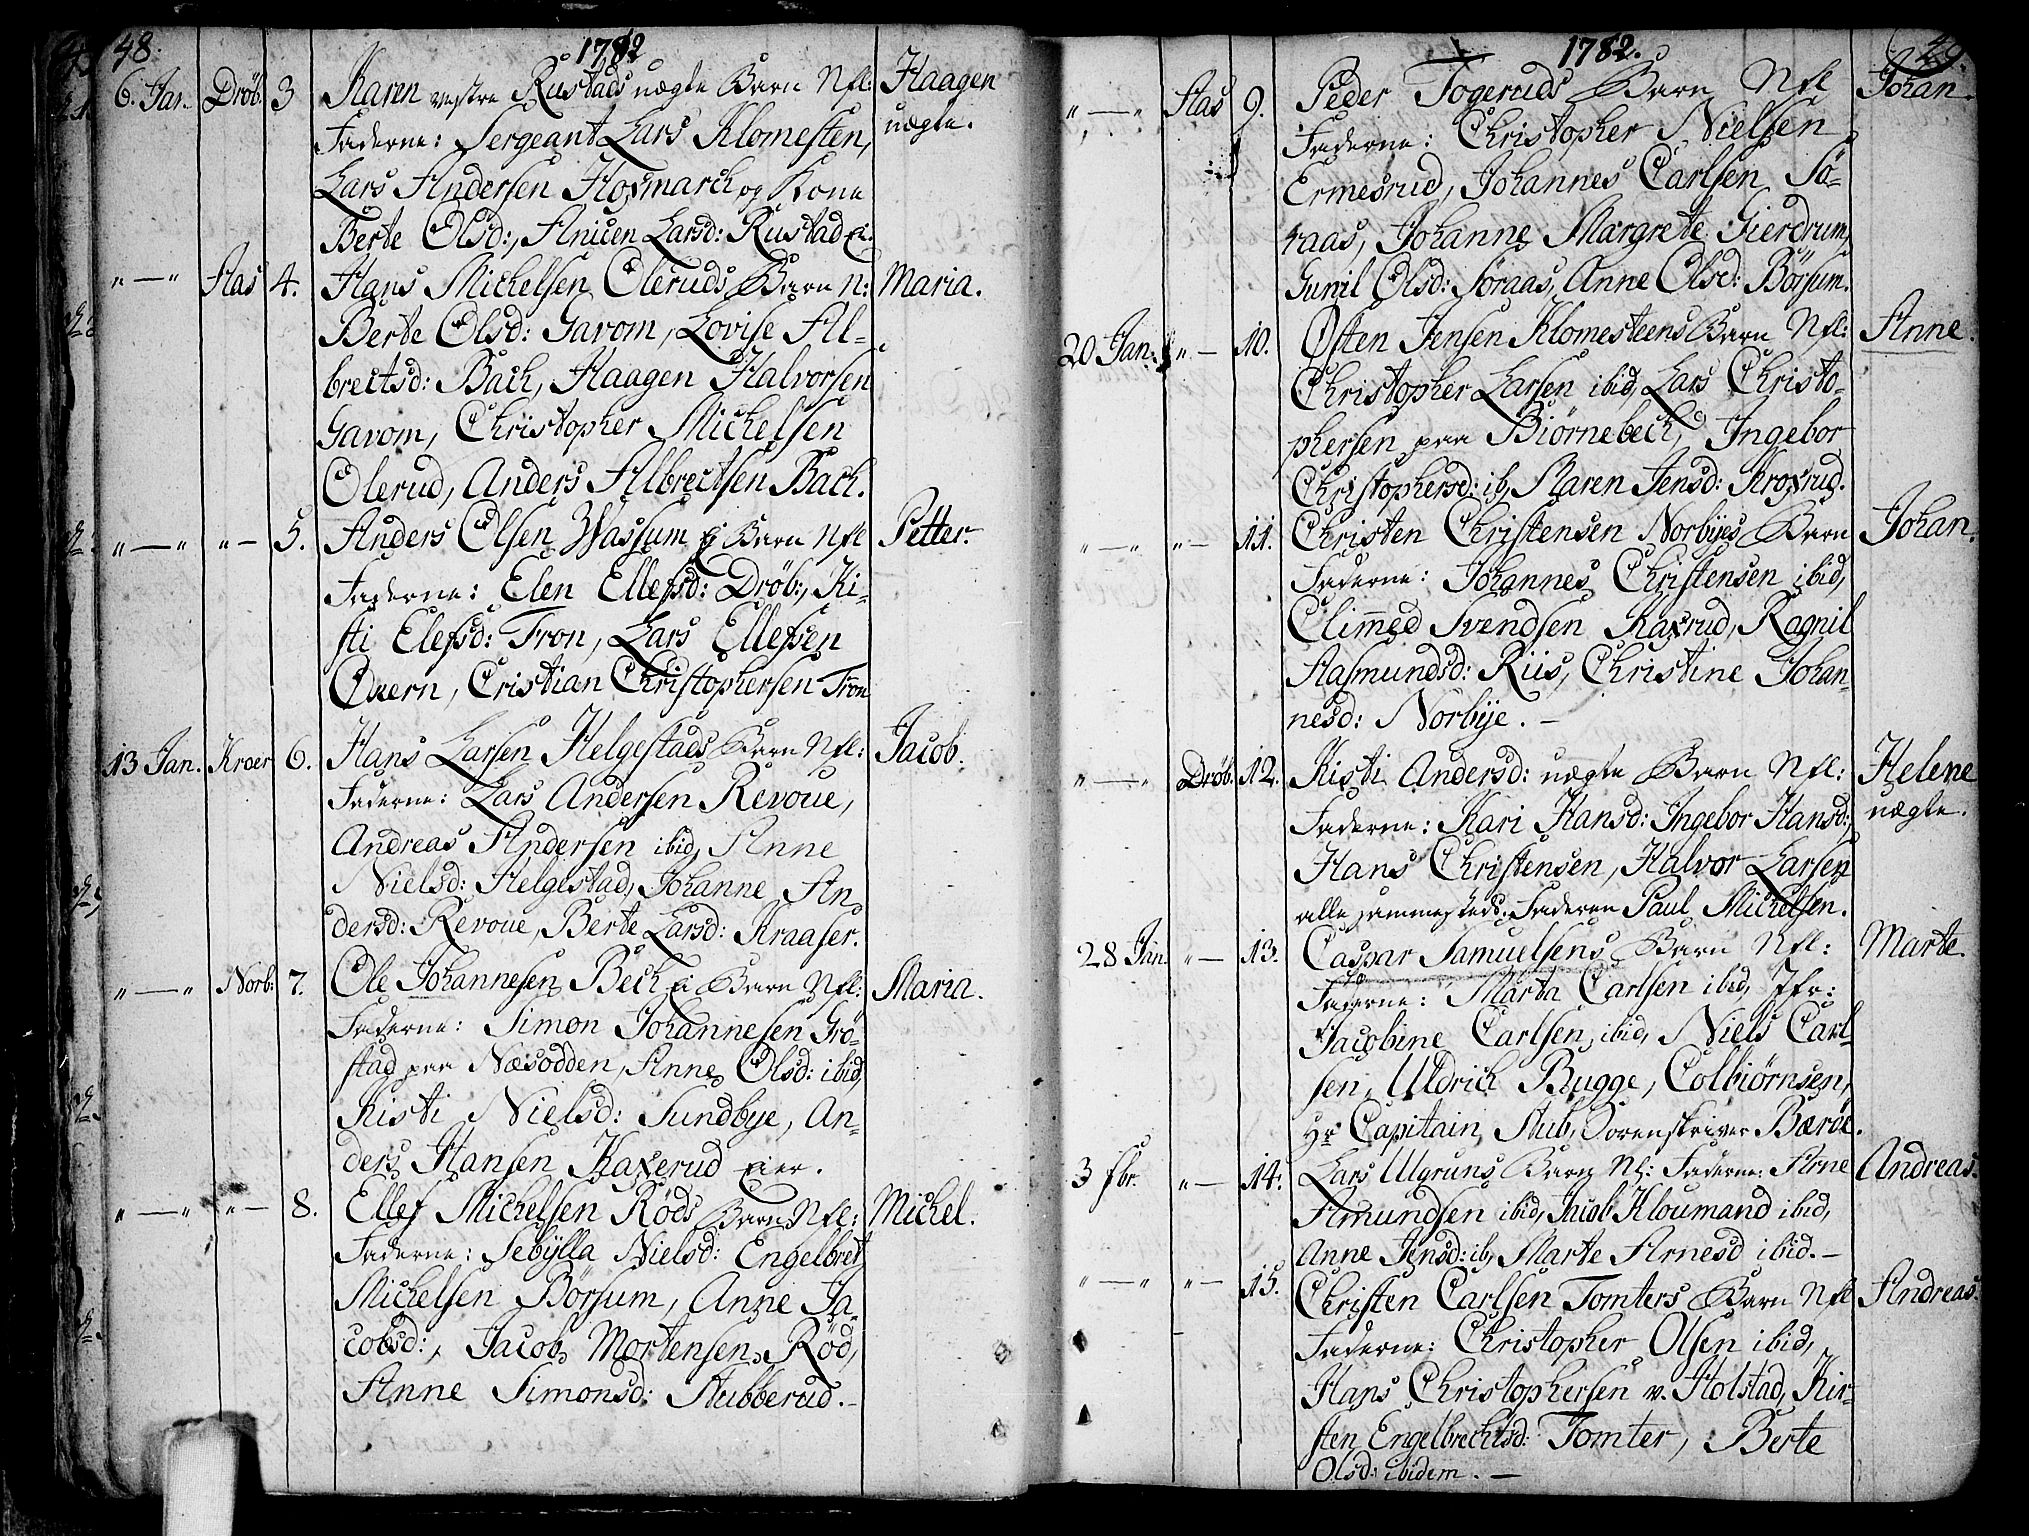 48.
1782
6. Jan. Dröb. 3 Karen vestre Rustads uægte Barn Nfl: Haagen
Faderne: Sergeant Lars Klomesten, uægte.
Lars Andersen Hoxmarch og Kone
Berte Olsd:, Anicen Larsd: Rustad Ei.
"—" Aas 4. Hans Michelsen Oleruds Barn N: Maria.
Berte Olsd: Gavom, Lovise Al-
brectsd: Bach, Haagen Halvorsen
Gavom, Christopher Michelsen
Olerud, Anders Albrectsen Bach.
"—" "— 5. Anders Olsen Wassum Ei Barn Nfl Petter.
Faderne: Elen Ellefsd: Dröb:, Ki-
sti Elefsd: Tron, Lars Ellefsen
Oxern, Cristian Christophersen Tron
13 Jan. Kroer 6. Hans Larsen Helgestads Barn Nfl: Jacob.
Faderne: Lars Andersen Revoue,
Andreas Andersen ibid, Anne
Nielsd: Helgestad, Johanne An
dersd: Revoue, Berte Larsd: Kraaser.
"—" Norb: 7. Ole Johannesen Bech Ei Barn Nfl: Maria.
Faderne: Simon Johannesen Grö-
stad paa Næsodden, Anne Olsd: ibid,
Kisti Nielsd: Sundbye, An-
ders Hansen Kaxerud Eier.
"—" "— 8. Ellef Michelsen Röds Barn Nfl: Michel.
Faderne: Sebylla Nielsd: Engelbret
Michelsen Börsum, Anne Ja-
cobsd:, Jacob Mortensen Röd,
Anne Simonsd: Stubberud.—
1782.
49.
"—" Aas 9. Peder Togeruds Barn Nfl Johan.
Faderne: Christopher Nielsen
Ermesrud, Johannes Carlsen Sö-
raas, Johanne Margrete Gierdrum,
Gunil Olsd: Söraas, Anne Olsd: Börsum.
20 Jan: "— 10. Östen Jensen Klomesteens Barn Nfl: Anne.
Christopher Larsen ibid, Lars Christo-
phersen paa Biörnebech, Ingebor
Christophersd: ib, Maren Jensd: Kroxrud.
"—" "— 11. Christen Christensen Norbyes Barn Johan.
Faderne: Johannes Christensen ibid,
Climmed Svendsen Kaxrud, Ragnil
Aasmundsd: Riis, Christine Johan-
nesd: Norbye.—
"—" Dröb. 12. Kisti Andersd: uægte Barn Nfl: Helene
Faderne: Kari Hansd: Ingebor Hansd:, uægte.
Hans Christensen, Halvor Larsen
alle sammesteds. Faderen Paul Michelsen.
28 Jan. "— 13. Caspar Samuelsens Barn Nfl: Marte.
Faderne: Marta Carlsen ibid, Jfr:
Jacobine Carlsen, ibid, Niels Carl-
sen, Uldrich Bugge, Colbiörnsen,
Hr Capitain Stub, Sorenskriver Bæröe.
3 fbr. "— 14. Lars Ulgruns Barn Nf: Faderne: Arne Andreas.
Amundsen ibid, Jacob Kloumand ibid,
Anne Jensd: ib, Marte Arnesd ibid.—
"—" "— 15. Christen Carlsen Tomters Barn Nfl Andreas.
Faderne: Christopher Olsen ibid,
Hans Christophersen v. Holstad, Kir-
sten Engelbrechtsd: Tomter, Berte
Olsd: ibidem.—